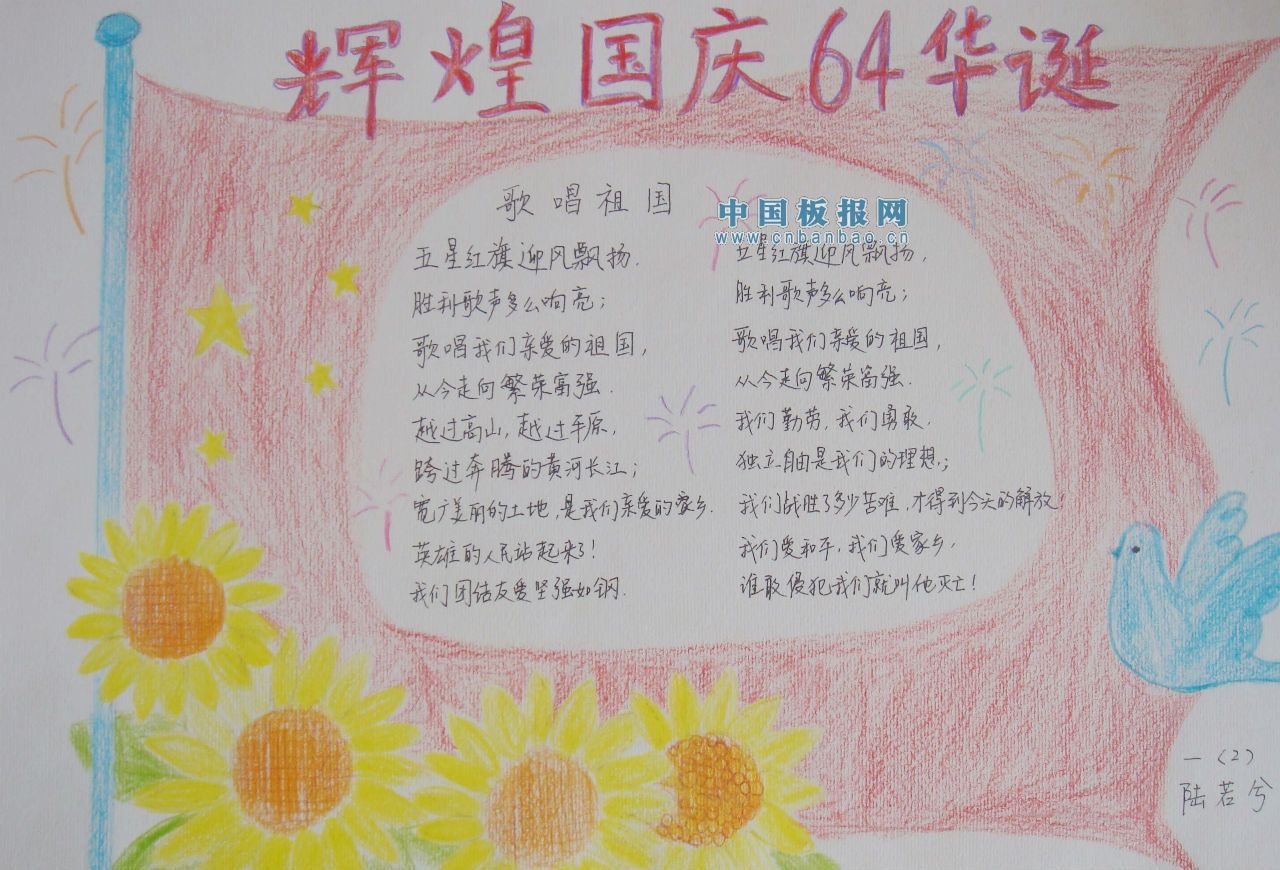 辉煌国庆64华诞
歌唱祖国
中国板报网
www.cnbanbao.cn
五星红旗迎风飘扬.
胜利歌声多么响亮;
歌唱我们亲爱的祖国,
从今走向繁荣富强.
越过高山,越过平原,
跨过奔腾的黄河长江;
宽广美丽的土地,是我们亲爱的家乡.
英雄的人民站起来了!
我们团结友爱坚强如钢.
五星红旗迎风飘扬,
胜利歌声多么响亮;
歌唱我们亲爱的祖国,
从今走向繁荣富强.
我们勤劳,我们勇敢,
独立自由是我们的理想;
我们战胜了多少苦难,才得到今天的解放!
我们爱和平,我们爱家乡,
谁敢侵犯我们就叫他灭亡!
一(2)
陆若兮